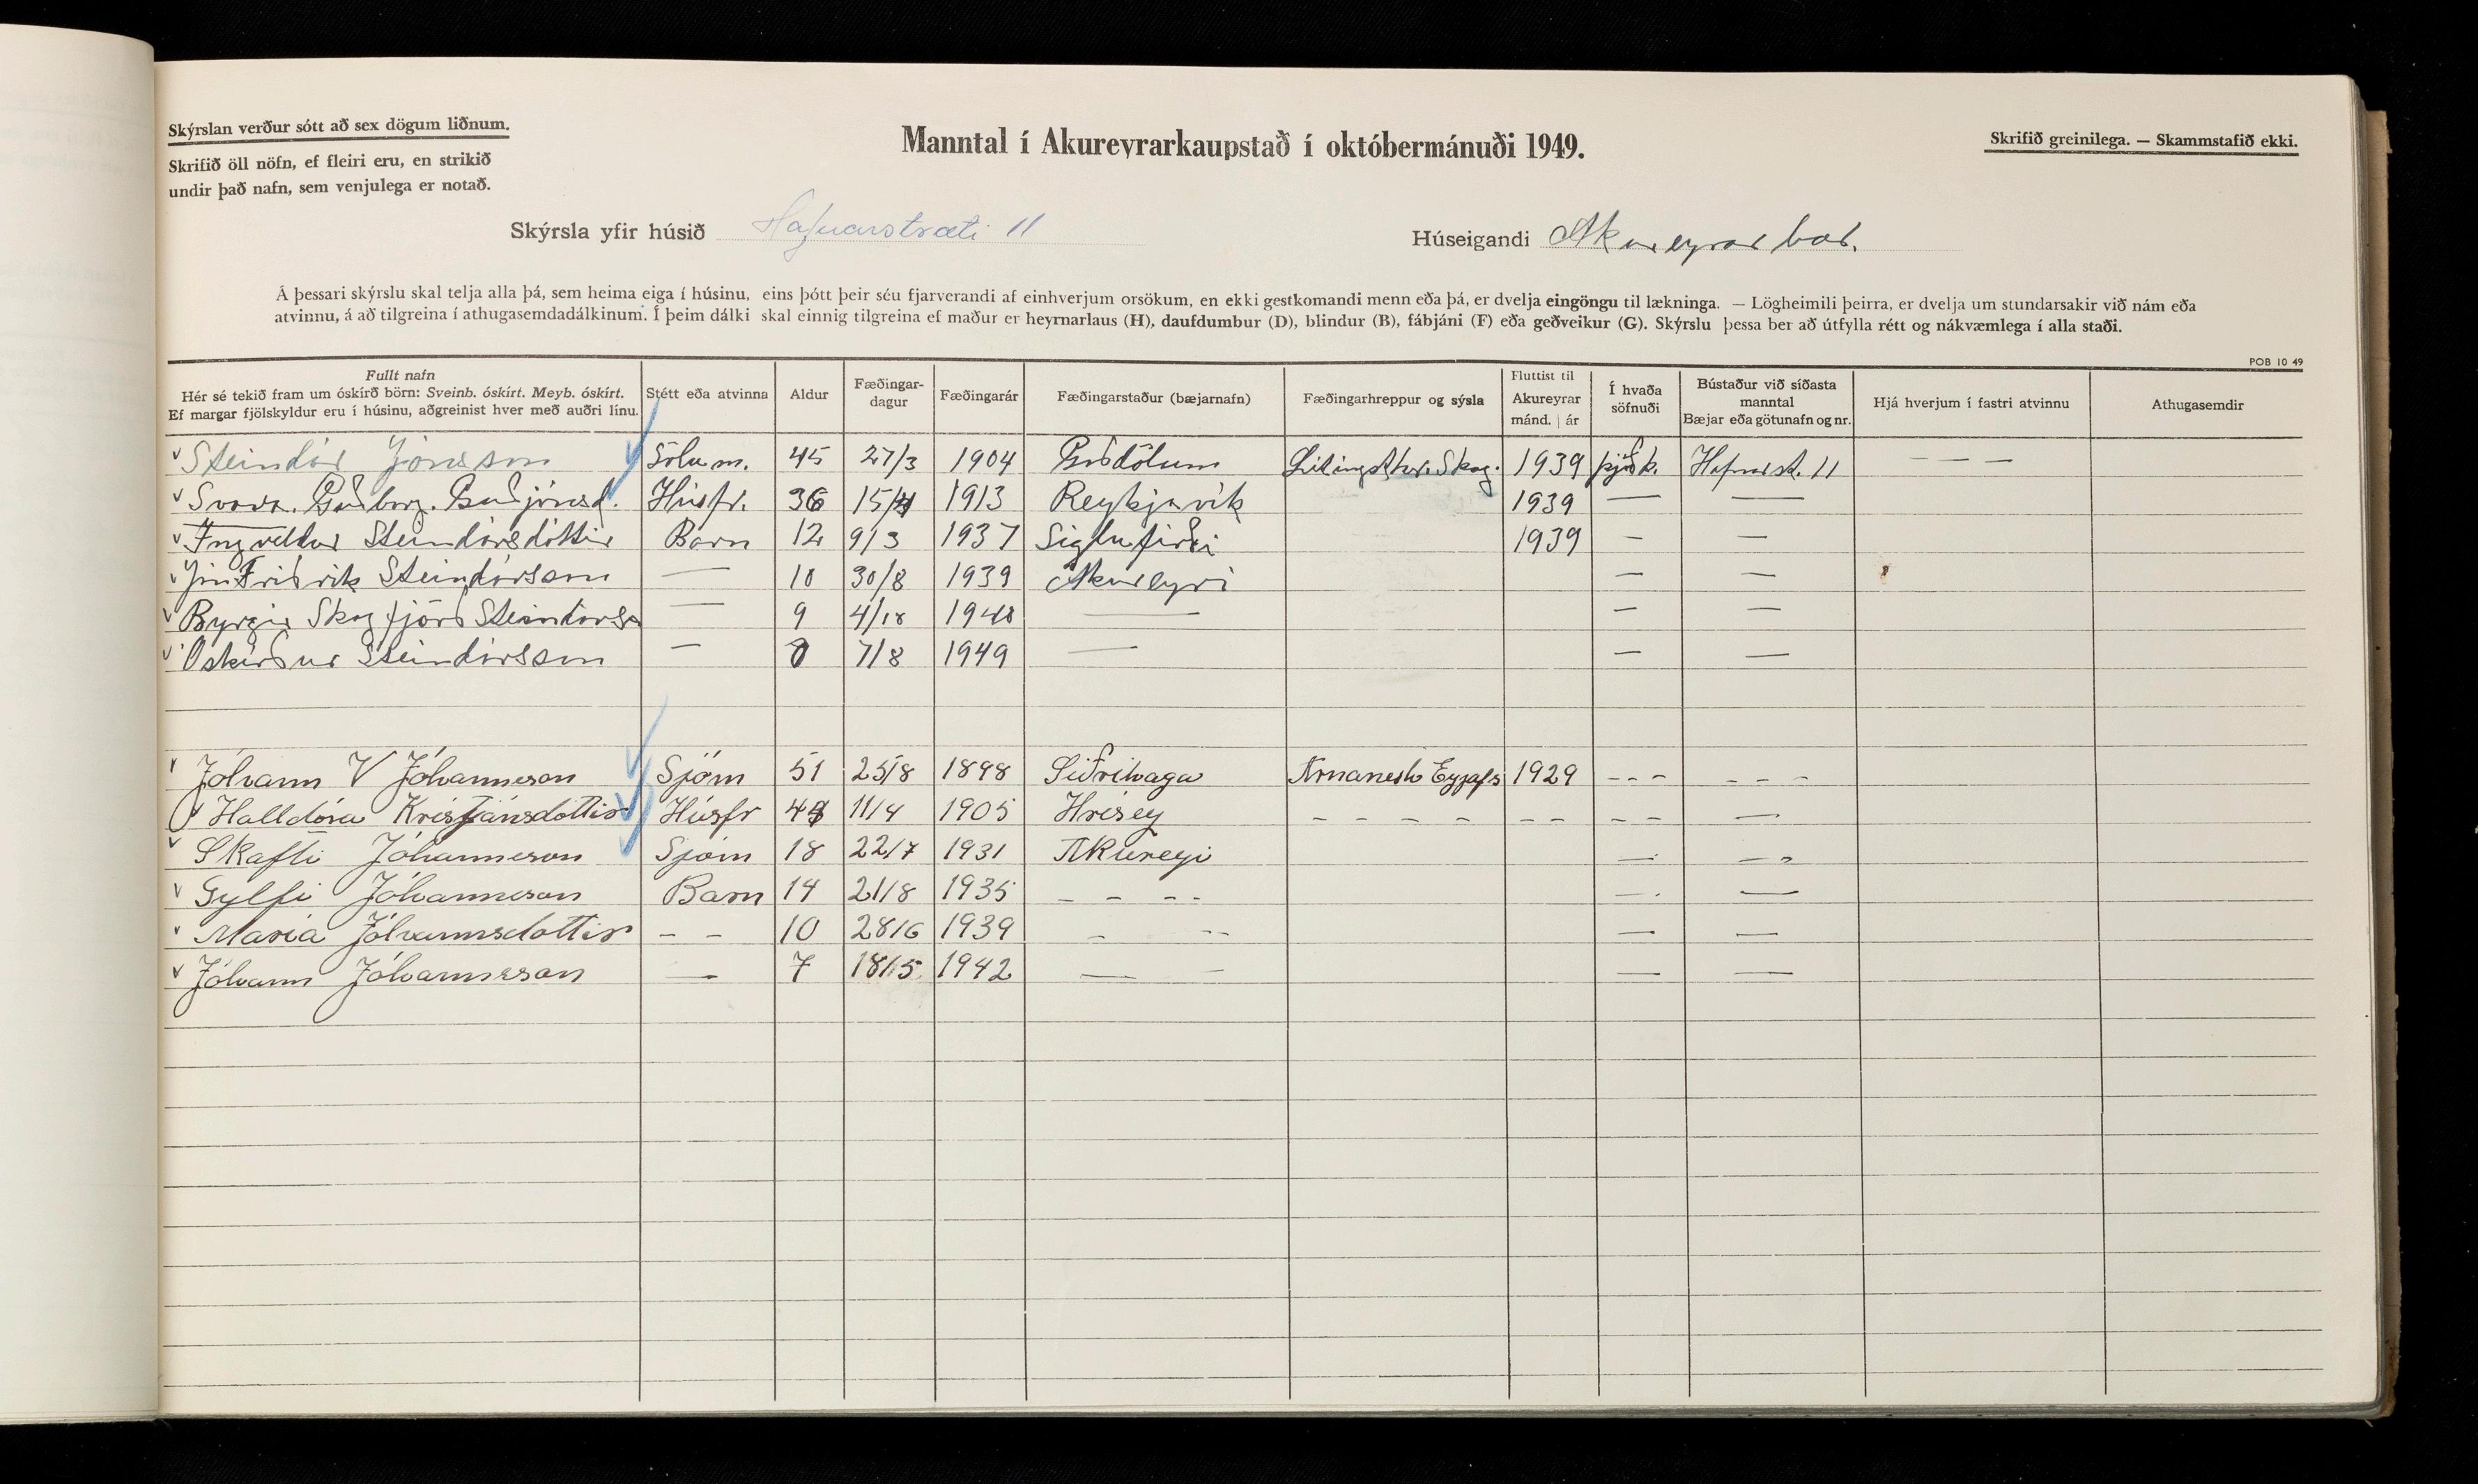 Skýrslan verður sótt að sex dögum liðnum.
Skrifið öll nöfn, ef fleiri eru, en strikið
undir það nafn, sem venjulega er notað.
Manntal í Akureyrarkaupstað í októbermánuði 1949.
Skrifið greinilega. — Skammstafið ekki.
Skýrsla yfir húsið Hafnarstræti 11
Húseigandi Akureyrarbær.
Á þessari skýrslu skal telja alla þá, sem heima eiga í húsinu, eins þótt þeir séu fjarverandi af einhverjum orsökum, en ekki gestkomandi menn eða þá, er dvelja eingöngu til lækninga. — Lögheimili þeirra, er dvelja um stundarsakir við nám eða
atvinnu, á að tilgreina í athugasemdadálkinum. Í þeim dálki skal einnig tilgreina ef maður er heyrnarlaus (H), daufdumbur (D), blindur (B), fábjáni (F) eða geðveikur (G). Skýrslu þessa ber að útfylla rétt og nákvæmlega í alla staði.
POB 10 49
Fullt nafn
Hér sé tekið fram um óskírð börn: Sveinb. óskírt. Meyb. óskírt.
Ef margar fjölskyldur eru í húsinu, aðgreinist hver með auðri línu.
Stétt eða atvinna
Aldur
Fæðingar-
dagur
Fæðingarár
Fæðingarstaður (bæjarnafn)
Fæðingarhreppur og sýsla
Fluttist til
Akureyrar
mánd. | ár
Í hvaða
söfnuði
Bústaður við síðasta
manntal
Bæjar eða götunafn og nr.
Hjá hverjum í fastri atvinnu
Athugasemdir
Steindór Jónsson Sölum. 45 27/3 1904 Skag. 1939 þjóðk. Hafnarst. 11 – – –
Svava Guðborg Guðjónsd. Húsfr. 36 15/4 1913 Reykjavík 1939 — —
Ingveldur Steindórsdóttir Barn 12 9/3 1937 Siglufirði 1939 — —
Jón Friðrik Steindórsson — 10 30/8 1939 Akureyri — —
Byrgir Skagfjörð Steindórss — 9 4/10 1940 — — —
Óskírður Steindórsson — 0 7/8 1949 — — —
Jóhann V Jóhannesson Sjóm 51 25/8 1898 Syðrihaga Arnanesh Eyjafs 1929 - - - - - -
Halldóra Kristjánsdóttir Húsfr 44 11/4 1905 Hrísey - - - - - - - - —
Skafti Jóhannsson Sjóm 18 22/7 1931 Akureyi — —
Gylfi Jóhannsson Barn 14 21/8 1935 - - - - — —
María Jóhannsdóttir - - 10 28/6 1939 - - - — —
Jóhann Jóhannsson — 7 18/5 1942 — - — —